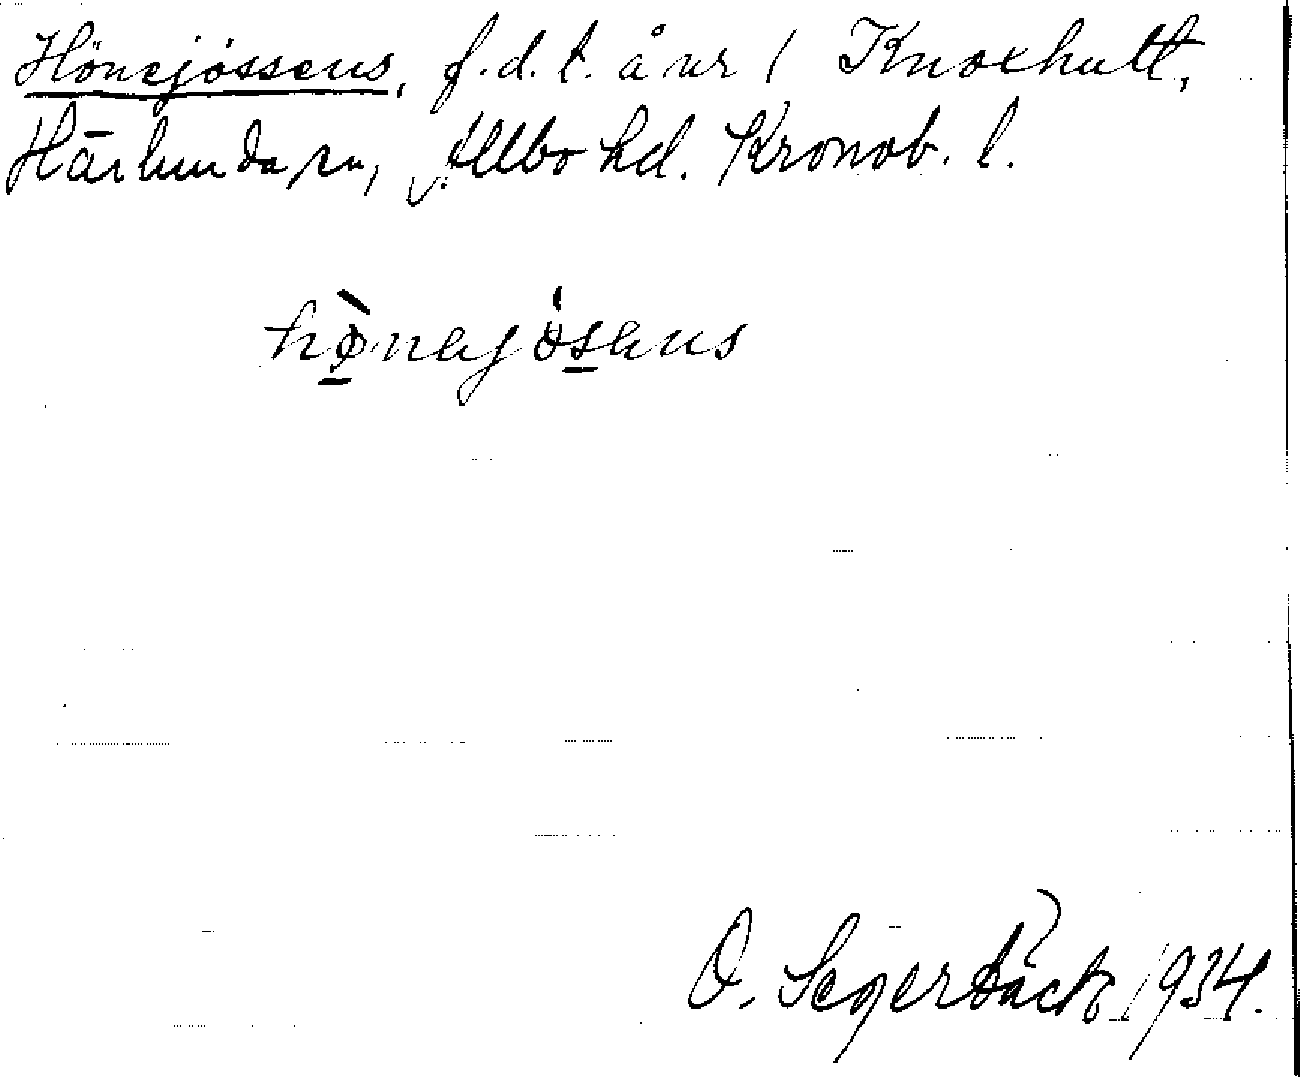 Hönejössens, f.d.t. å ur / Knoxhult,
Härlunda sn, Allbo hd. Kronob. l.
hø̀nejösens
O. Segerbäck 1934.